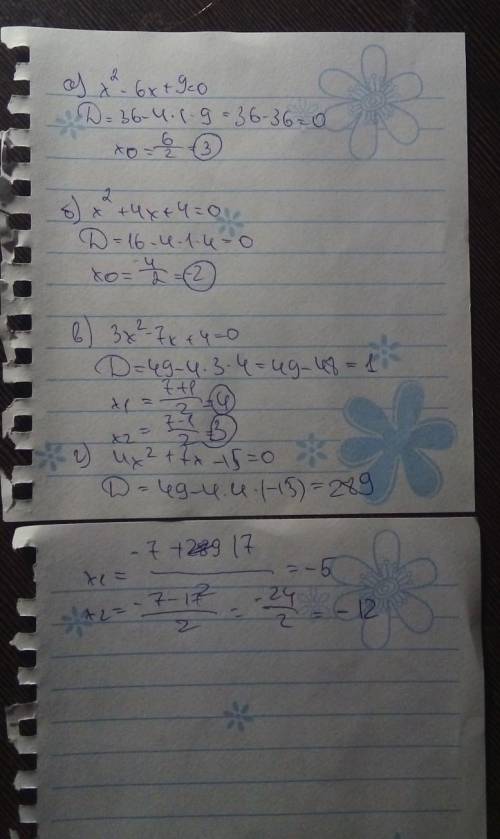 а) x² - 6x + 9 = 0
D = 36 - 4 · 1 · 9 = 36 - 36 = 0
x0 = 6/2 = 3
б) x² + 4x + 4 = 0
D = 16 - 4 · 1 · 4 = 0
x0 = -4/2 = -2
в) 3x² - 7x + 4 = 0
D = 49 - 4 · 3 · 4 = 49 - 48 = 1
x1 = 7+1/2 = 4
x2 = 7-1/2 = 3
г) 4x² + 7x - 15 = 0
D = 49 - 4 · 4 · (-15) = 289
x1 = -7 + 17/ = -5
x2 = -7-17/2 = -24/2 = -12